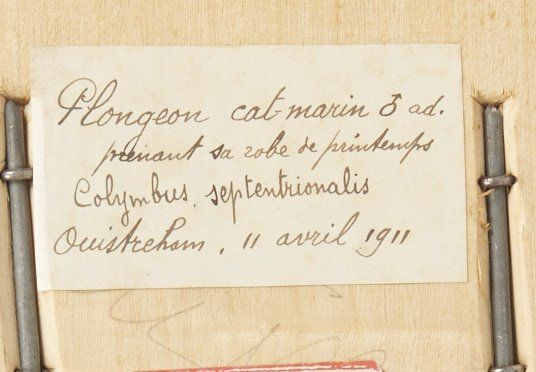 Plongeon cat-marin ♂ ad.
prenant sa robe de printemps
Colymbus septentrionalis
Ouistreham, 11 avril 1911